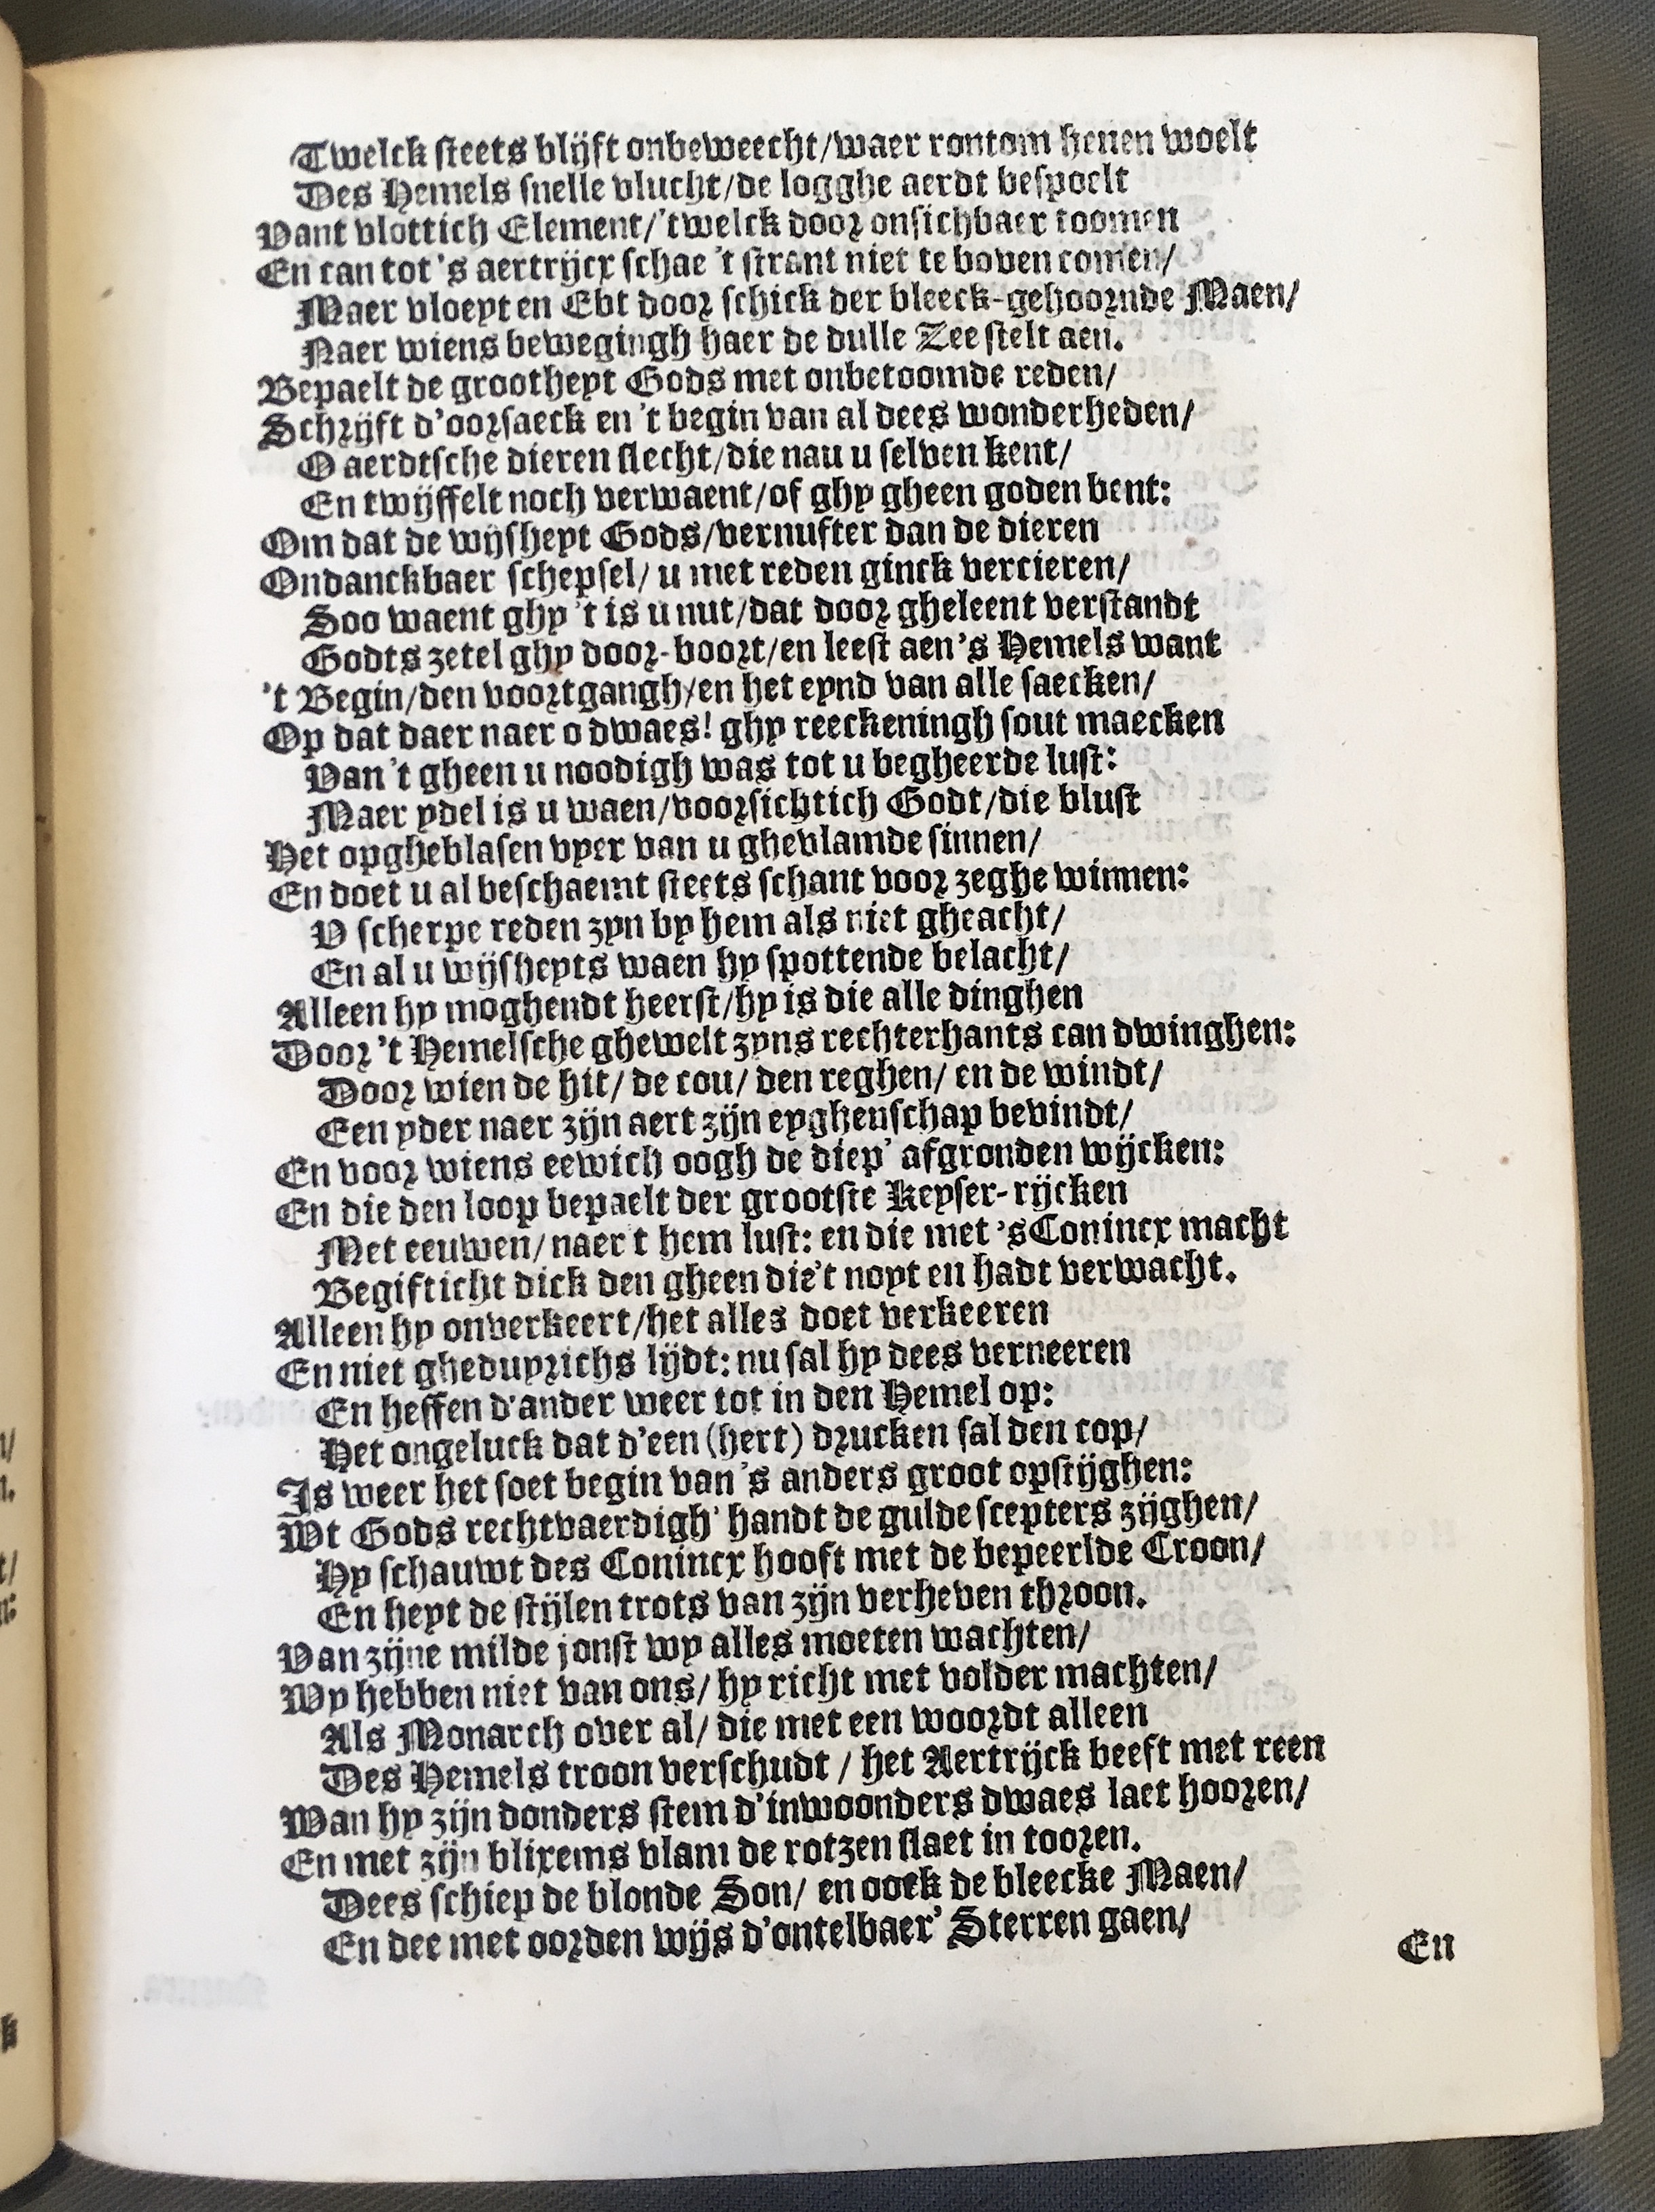 Twelck steets blijft onbeweecht/waer rontom henen woelt
Des Hemels snelle vlucht/de logghe aerdt bespoelt
Vant vlottich Element/'twelck door onsichbaer toomen
En can tot 's aertrijcx schae 't strant niet te boven comen/
Maer vloeyt en Ebt door schick der bleeck-gehoornde Maen/
Naer wiens bewegingh haer de dulle Zee stelt aen.
Bepaelt de grootheyt Gods met onbetoomde reden/
Schrijft d'oorsaeck en 't begin van al dees wonderheden/
O aerdtsche dieren slecht/die nau u selven kent/
En twijffelt noch verwaent/of ghy gheen goden bent:
Om dat de wijsheyt Gods/vernufter dan de dieren
Ondanckbaer schepsel/ u met reden ginck vercieren/
Soo waent ghy 't is u nut/dat door gheleent verstandt
Godts zetel ghy door-boort/en leest aen's Hemels want
't Begin/den voortgangh/en het eynd van alle saecken/
Op dat daer naer o dwaes! ghy reeckeningh sout maecken
Van't gheen u noodigh was tot u begheerde lust:
Maer ydel is u waen/voorsichtich Godt/die blust
Het opgheblasen vyer van u ghevlamde sinnen/
En doet u al beschaemt steets schant voor zeghe winnen:
V scherpe reden zyn by hem als niet gheacht/
En al u wijsheyts waen hy spottende belacht/
Alleen hy moghendt heerst/hy is die alle dinghen
Door 't Hemelsche ghewelt zyns rechterhants can dwinghen:
Door wien de hit/ de cou/ den reghen/ en de windt/
Een yder naer zijn aert zijn eyghenschap bevindt/
En voor wiens eewich oogh de diep' afgronden wijcken:
En die den loop bepaelt der grootste Keyser-rijcken
Met eeuwen/naer t hem lust: en die met 'sConincx macht
Begifticht dick den gheen die't noyt en hadt verwacht.
Alleen hy onverkeert/het alles doet verkeeren
En niet gheduyrichs lijdt: nu sal hy dees verneeren
En heffen d'ander weer tot in den Hemel op:
Het ongeluck dat d'een (hert) drucken sal den cop/
Is weer het soet begin van 's anders groot opstijghen:
Wt Gods rechtvaerdigh' handt de gulde scepters zijghen/
Hy schauwt des Conincx hooft met de bepeerlde Croon/
En heyt de stijlen trots van zijn verheven throon.
Van zijne milde jonst wy alles moeten wachten/
Wy hebben niet van ons/ hy richt met volder machten/
Als Monarch over al/ die met een woordt alleen
Des Hemels troon verschudt / het Aertrijck beeft met reen
Wan hy zijn donders stem d'inwoonders dwaes laet hooren/
En met zijn blixems vlam de rotzen slaet in tooren.
Dees schiep de blonde Son/ en oock de bleecke Maen/
En dee met oorden wijs d'ontelbaer' Sterren gaen/
En